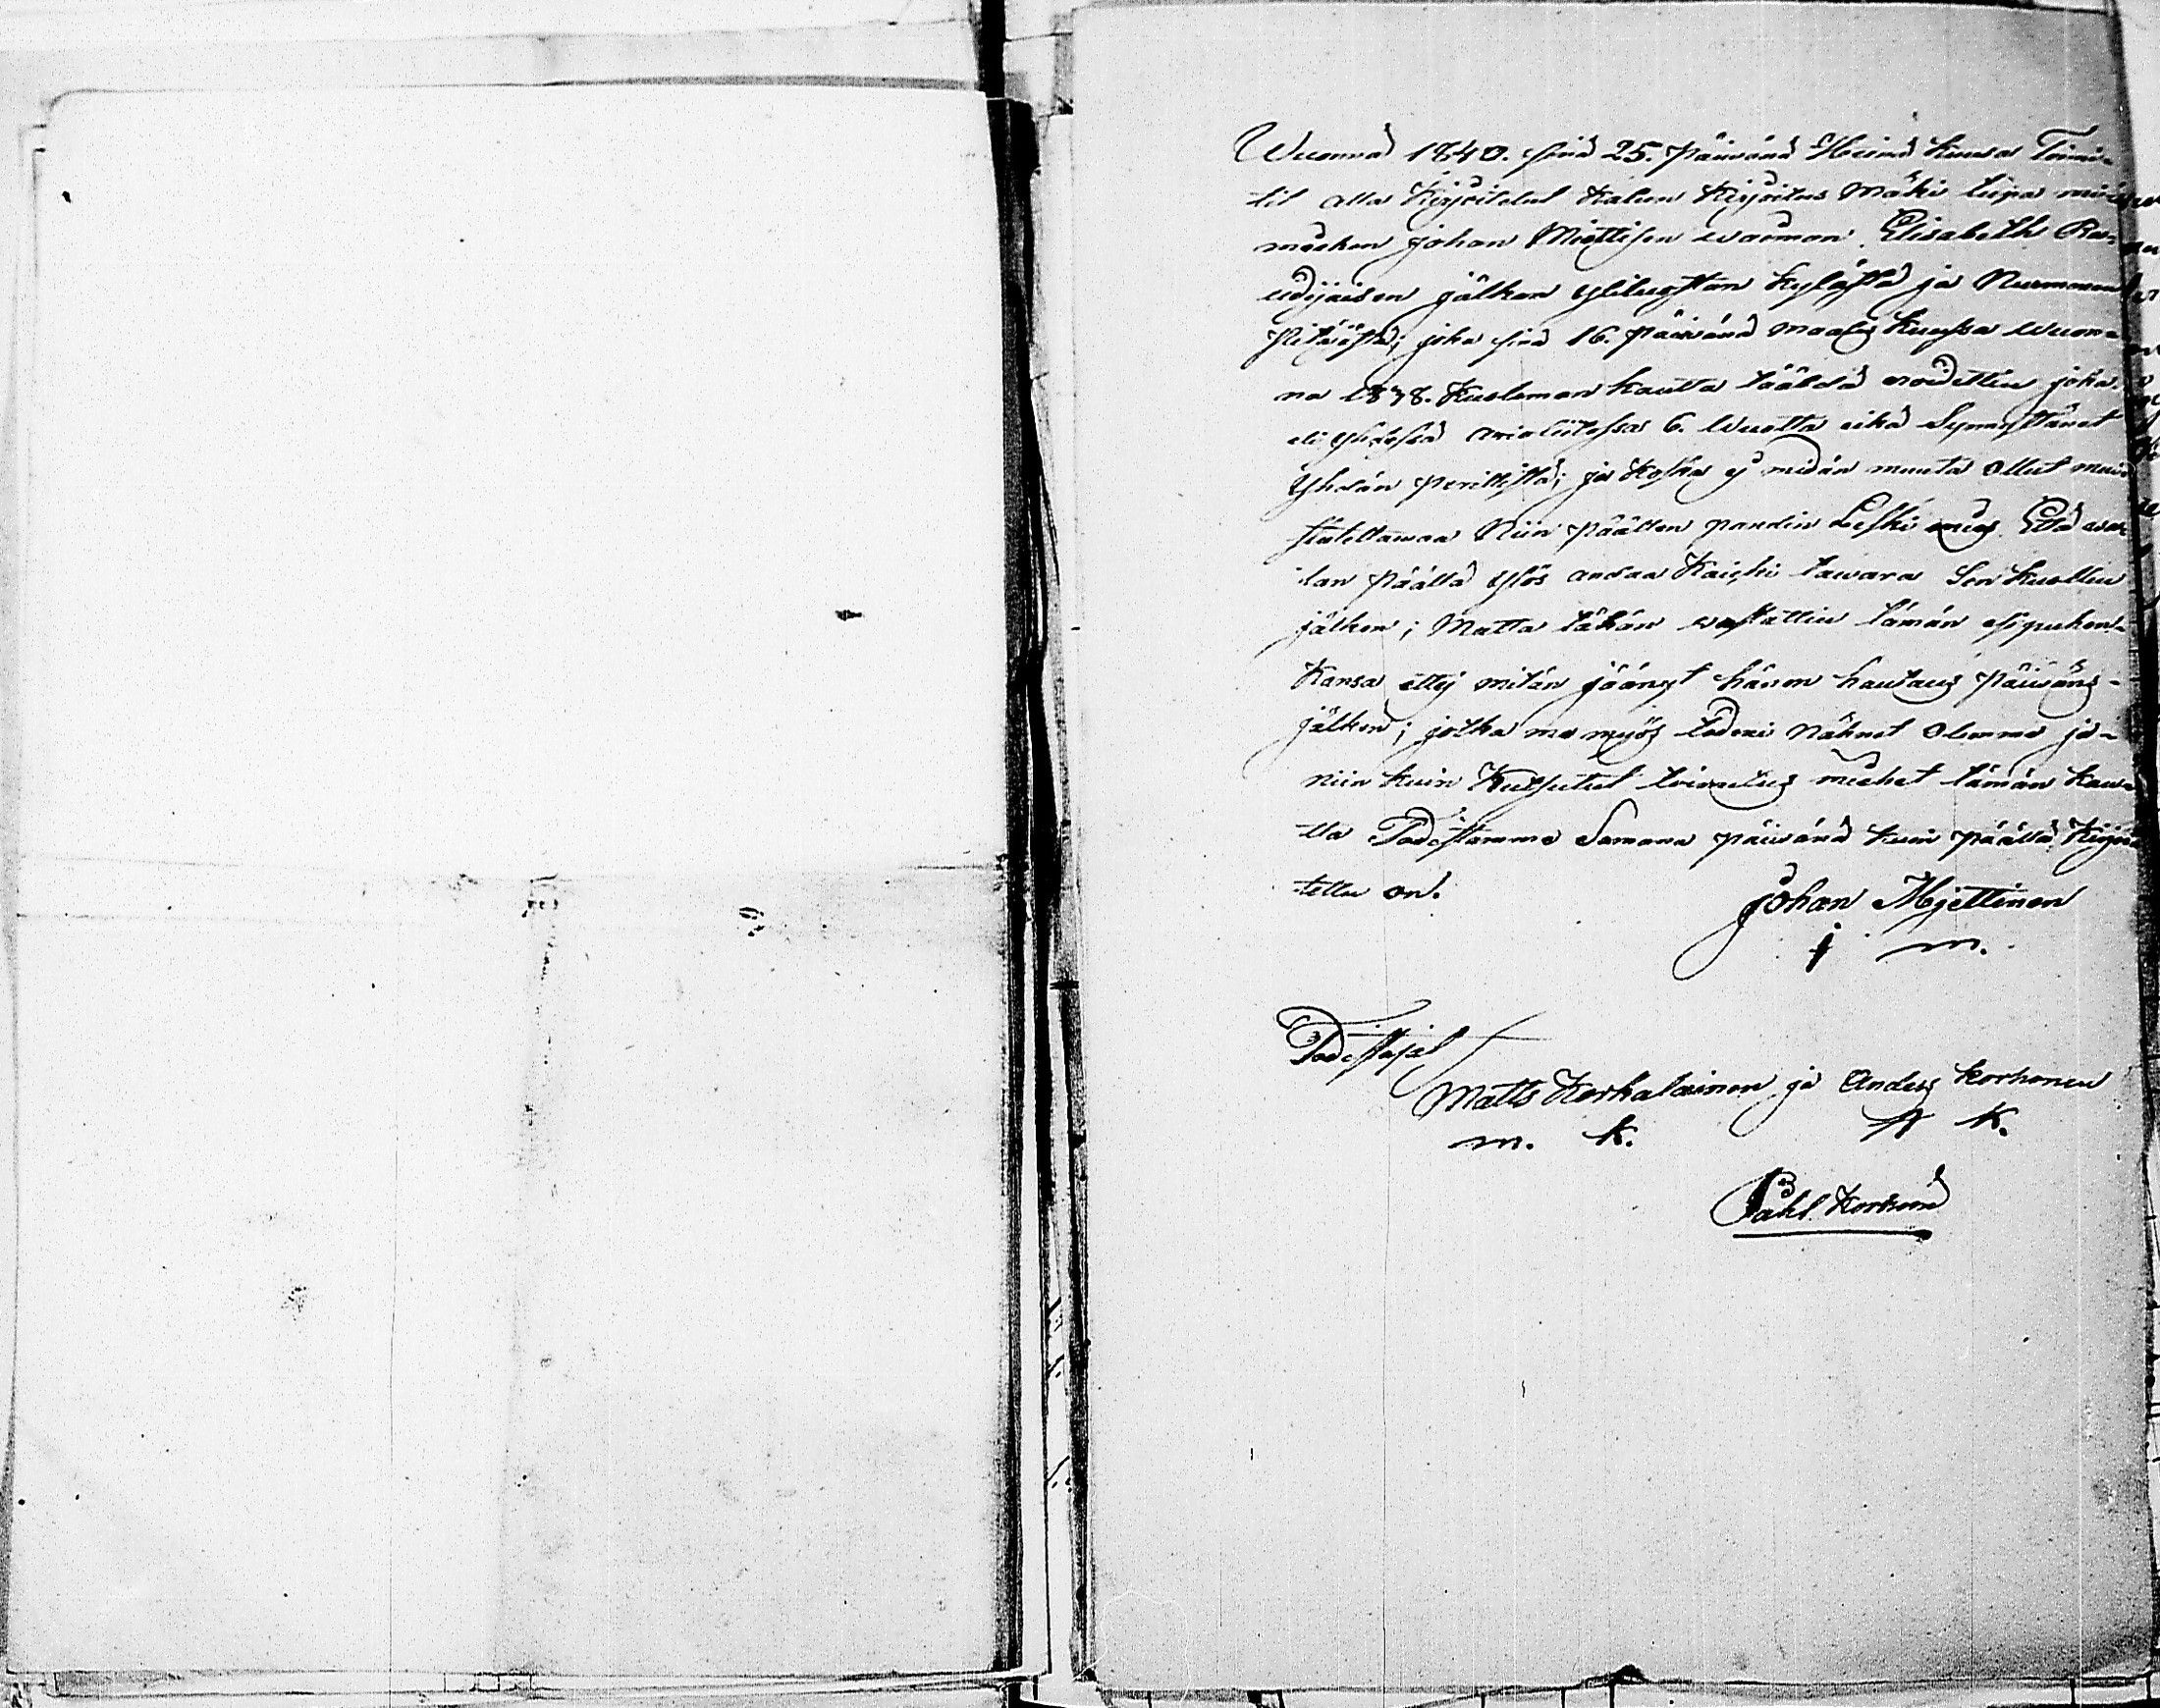 Wuonna 1840. sinä 25. päiwänä Heinä kuusa Toimi-
tit alla Kirjoitetut Kalun Kirjoitus Mäki tupa
miehen johan Miettisen waimon Elisabeth
jälken ylilugstan kylästä ja Nurmexen
Pitäästä; joka sinä 16. päiwänä maalis kuussa wuon-
na 1838. Kuoleman kautta täälda eroitettiu joka
eli yhdessä awioliitossa 6. wuotta eikä Synnyttänet
Yhdän perillistä; ja koska ej midän muuta ollut
Niin päällen pandin Leski mies Että wa-
lan päällä Ylös andaa Kaicki tawara Sen kuollen
jälken; Mutta tähän wastattiu tämän
Kansa ettej mitän jäänyt hänen hautaus päiwäns-
jälken; jotka me myös todexi Nähnet Olemme ja-
niin kuin Kutsutut toimitus miehet tämän kau-
tta Todistamme Samana päiwänä kuin päällä Kirjoi
tettu on.
Johan Mjettinen
j m.
Todistajat
Matts Korkalainen ja Anders korhonen
m. K. A K.
Påhl Korhonen